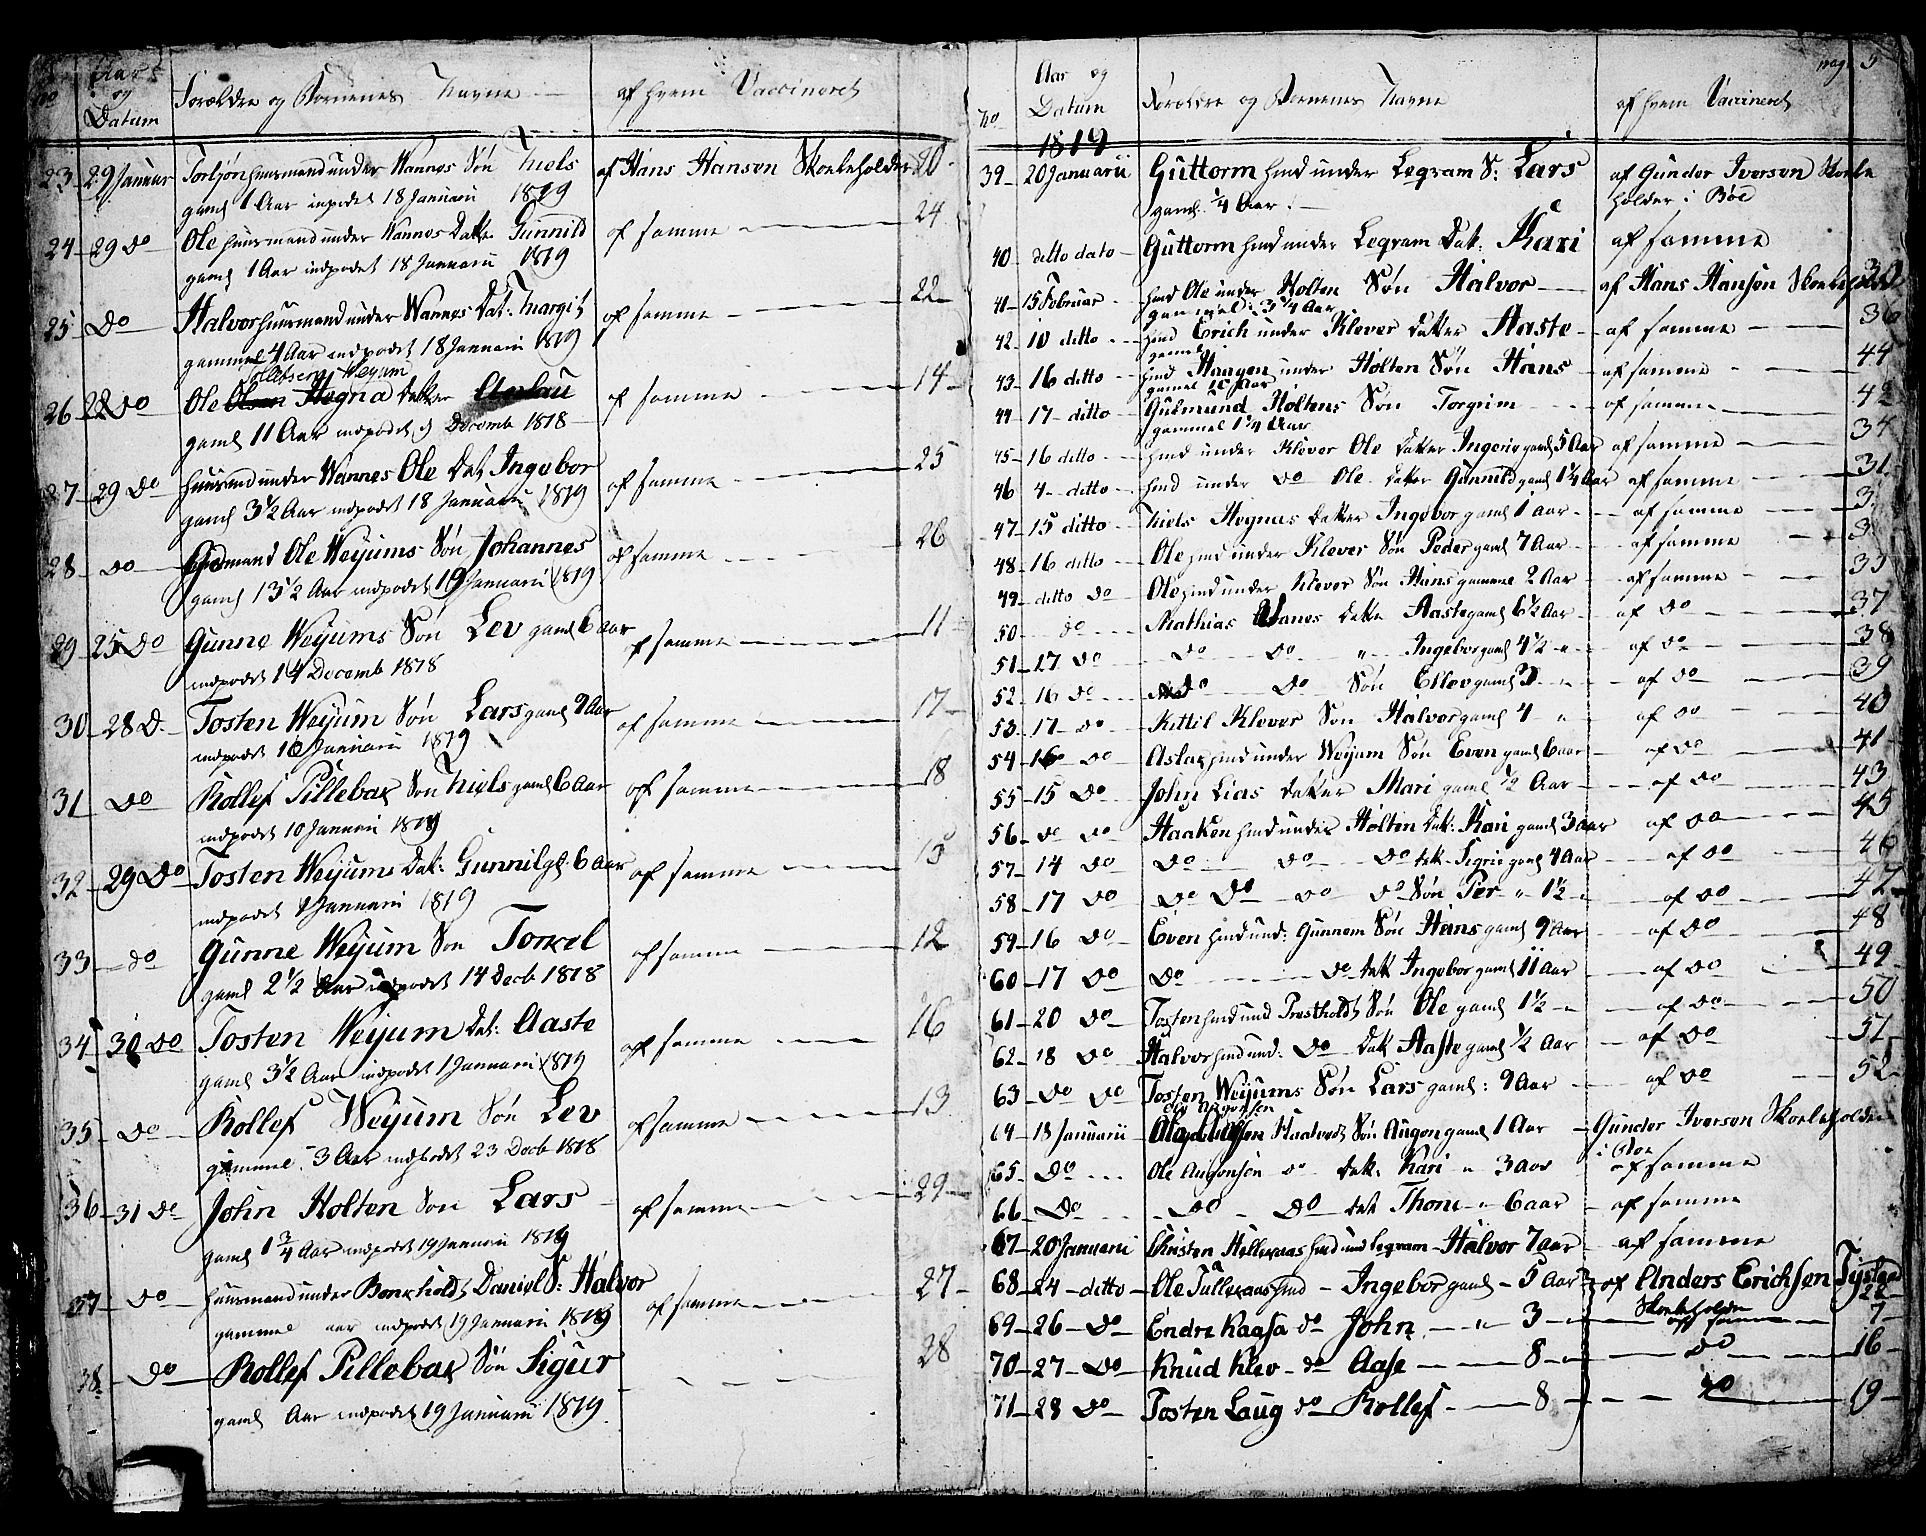 Aars
og
Datum
Forældre og Børnenes Navne
af hvem Vaccineret
23 29 Januar Torbjøn huusmand under Wannes Søn Niels af Hans Hansen Skoleholder 20
gaml 1 Aar inpodet 18 Januarii 1819
24 29 Do Ole huusmand under Wannes Datter Gunnild af samme 24
gaml 1 Aar indpodet 18 Januarii 1819
25 Do Halvor huusmand under Wannes Dat: Margit af samme 22
gammel 4 Aar indpodet 18 Januarii 1819
Weyum
26 22 Do Ole Hegna Datter af samme 14
gaml 11 Aar indpodet Decemb 1818
27 29 Do huusmd under Wannes Ole Dat Ingebor af samme 25
gaml 3½ Aar indpodet 18 Januarii 1819
28 Do Ole Weyums Søn Johannes af samme 26
gaml 13½ Aar indpodet 19 Januarii 1819
29 25 Do Gunne Weyums Søn Lev gaml 6 aar af samme 11
indpodet 14 Decemb 1818
30 28 D. Tosten Weyum Søn Lars gaml 9 Aar af samme 17
indpodet 10 Januarii 1819
31 Do Rollef Pillebak Søn Niels gaml 6 Aar af samme 18
indpodet 10 Januarii 1819
32 29 Do Tosten Weyums Dat: Gunnil gl 6 Aar af samme 15
indpodet 1 Januarii 1819
33 do Gunne Weyum Søn Torkel af samme 12
gaml 2½ Aar indpodet 14 Decb 1818
34 30 Do Tosten Weyum Dat: Aaste af samme 16
gaml 3½ Aar indpodet 1 Januarii 1819
35 Do Rollef Weyum Søn Lev af samme 13
gammel 3 Aar indpodet 23 Decb 1818
36 31 Do John Holten Søn Lars af samme 29
gaml 1¾ Aar indpodet 19 Januarii 1819
37 Do huusmand under Daniels S: Halvor af samme 27
gammel aar indpodet 19 Januarii 1819
38 Do Rollef Pillebak Søn Sigur 28
gaml Aar indpodet 19 Januarii 1819
pag. 3
No
Aar og
Datum
1819
Foroldre og Børnenes Navne
af hvem Vaccineret
39 20 Januarii Guttorm hmd under Legram S: Lars af Gunder Iverson Skole
gaml ¼ Aar holder i Bøe
40 ditto dato Guttorm hmd under Legram Dat: Kari af samme
41 15 Februar hmd Ole under Holten Søn Halvor af Hans Hansen 30
gammel 3¼ Aar
42 10 ditto hmd Erich under Klever datter Aaste af samme 36
gaml
43 16 ditto hmd Haagen under Holten Søn Hans af samme 44
gamel 10 Aar
44 17 ditto Gulmund Holtens Søn Torgrim af samme 42
gammel 1¼ Aar
45 16 ditto hmd under Klever Ole Datter Ingerie gaml 5 Aar af samme 34
46 4 ditto hmd under Do Ole Datter Gunnild gaml 1¼ Aar af samme 31
47 15 ditto Niels Hegnas Datter Ingebor gaml 1 aar af samme 3
48 16 ditto Ole hmd under Klever Søn Peder gaml 7 Aar af samme 3
49 ditto Do Ole hmd under Klever Søn Hans gammel 2 Aar af samme 35
50 do Mathias Datter Aaste gaml 6½ Aar af Do 37
51 17 Do Do Do " Ingebor gaml 4½ " af Do 38
52 16 Do Do Do Søn Ellev gaml 3 " af do 39
53 17 Do Kittil Klever Søn Halvor gaml 4 " af Do 40
54 16 Do Aslak hmd under Weyum Søn Even gaml 6 aar af Do 41
55 15 Do John Lias Datter Mari gaml ½ Aar af Do 43
56 Do Do Haaken hmd under Holten Dat: Kari gaml 3 aar af Do 45
57 14 Do Do Do Do dat Sigrie gaml 4 Aar af Do 46
58 17 Do Do Do Do Do Søn Per " 1½ " af Do 47
59 16 Do Even hmd und: Gunnem Søn Hans gaml 9 Aar af Do 48
60 17 Do Do Do dat Ingebor gaml 11 Aar af Do 49
61 20 Do Tosten hmd und Prestholdt Søn Ole gaml 1½ " af Do 50
62 18 Do Halvor hmd und: Do Dat Aaste gaml ½ Aar af Do 51
63 Do Do Tosten Weyums Søn Lars gaml: 9 Aar af Do 52
64 18 Januarii Haatvedt Søn Augon gaml 1 Aar Gunder Iverson Skoleholder
i Bøe
65 Do Ole Augonsen do Dat: Kari " 3 aar af samme
66 Do Do Do dat Thone " 6 aar af samme
67 20 Januarii Christen Helleraas hmd und Legram Halvor 7 aar af samme
68 24 ditto Ole Tulleraas hmd Ingebor gaml 5 Aar af Anders Erichsen
Skoleholder 22
69 26 Do Endre Kaasa do John " 3 " af samme 7
70 27 Do Knud Klev do Aase 8 " Do 16
71 28 Do Tosten Laug do Rollef 8 Do 19